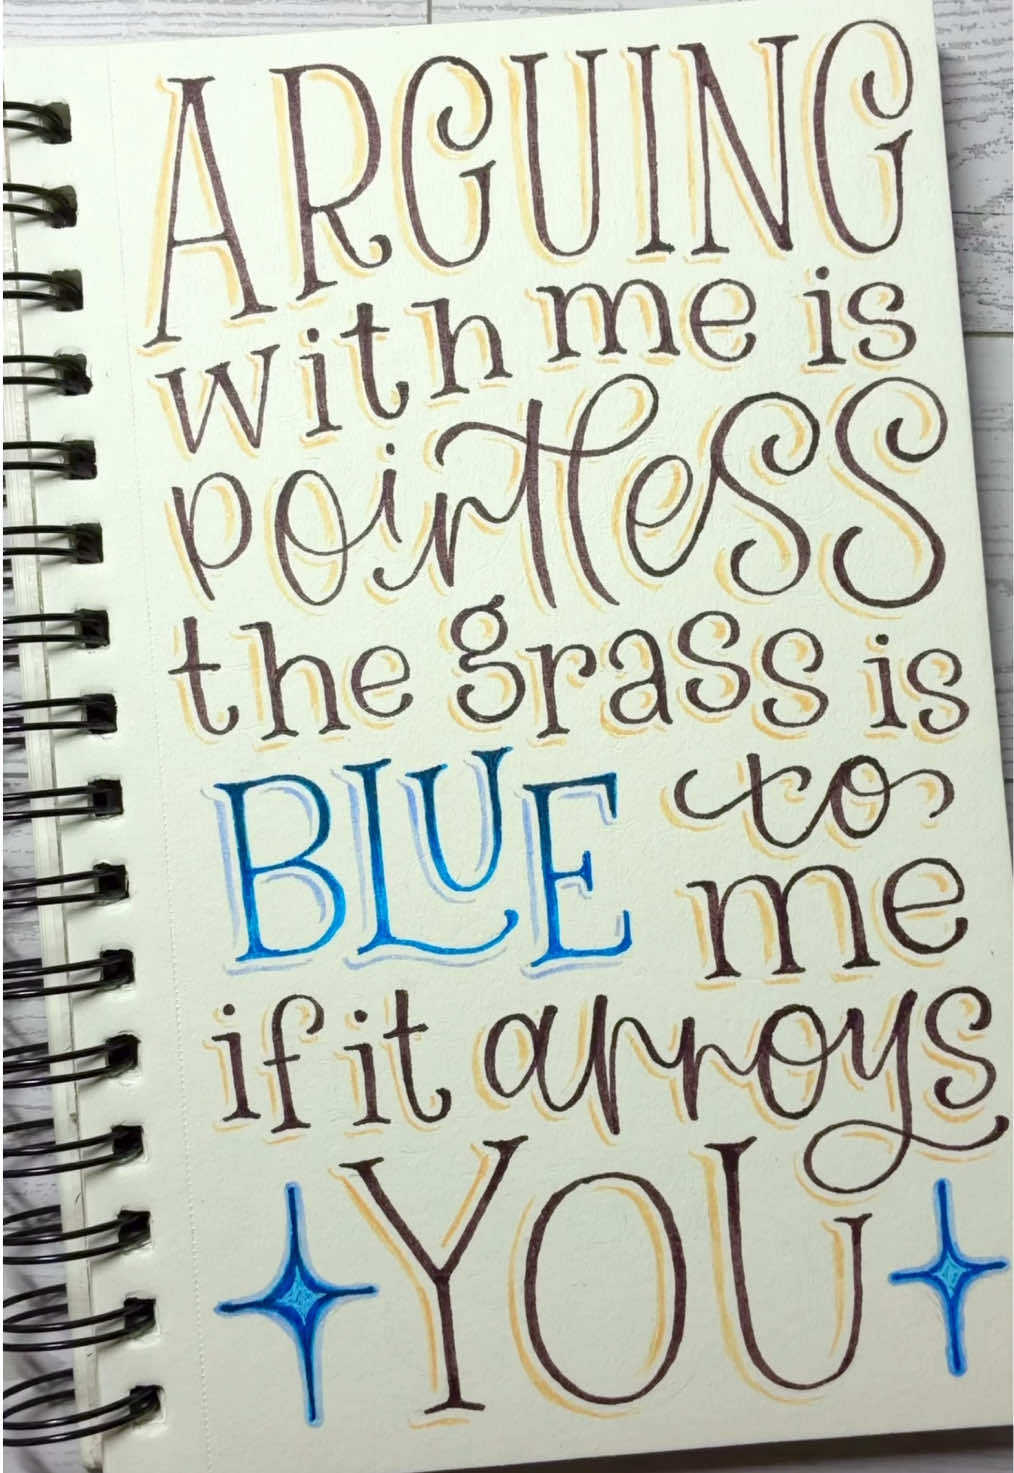 ARGUING
with me is
pointless
the grass is
BLUE to
me
if it annoys
YOU